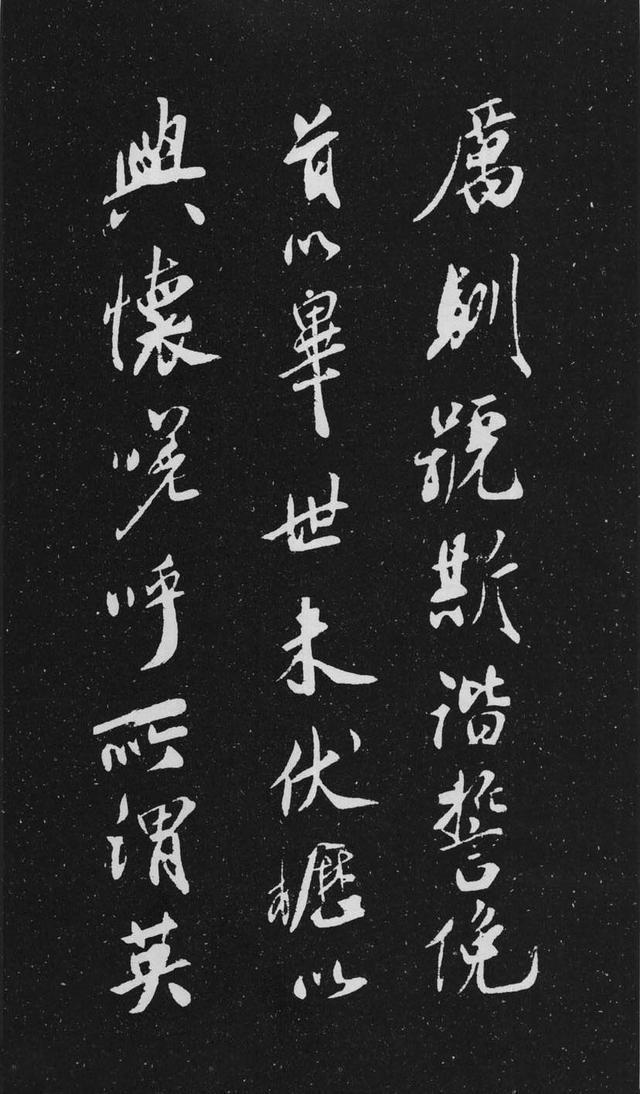 厲劚號斯諧誓俛
首以畢世未伏櫪以
興懷嗟呼所謂英